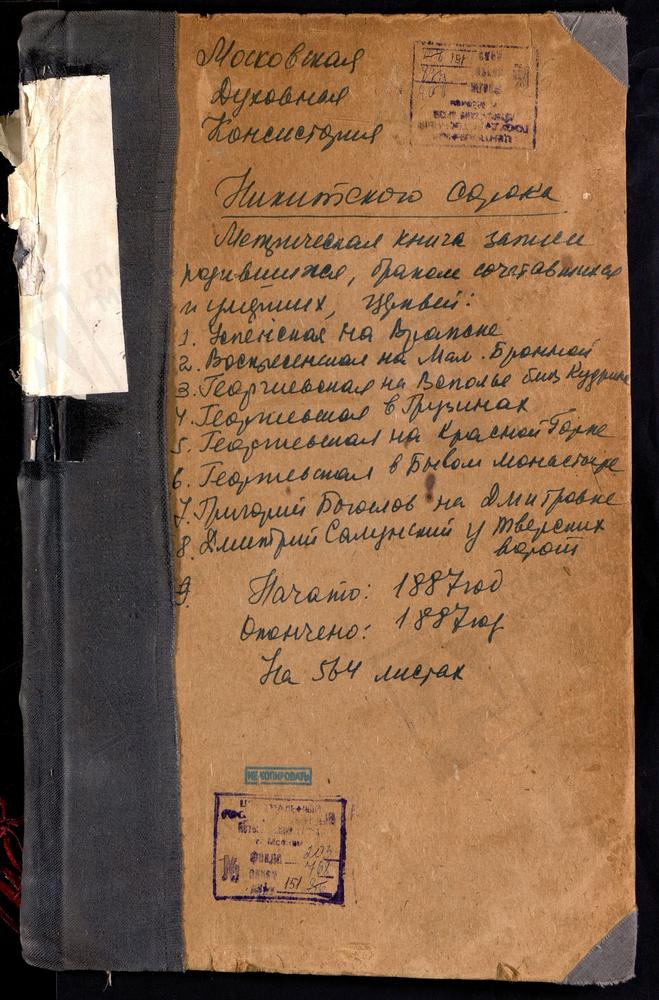 Московская
Духовная
Консистория
Никитского Сорока
Метрическая книга записи
родившихся, браком сочетавшихся
и умерших, церквей:
1. Успенская на Вражке
2. Воскресенская на Мал. Бронной
3. Георгиевская на Всполье близ Кудрина
4. Георгиевская в Грузинах
5. Георгиевская на Красной Горке
6. Георгиевская в Бывом монастыре
7. Григорий Богослов на Дмитровке
8. Дмитрий Салунский у Тверских
ворот
9.
Начато: 1887 год
Окончено: 1887 год
На 564 листах
НЕ КОПИРОВАТЬ
г. Москвы
№
фонда 203
151